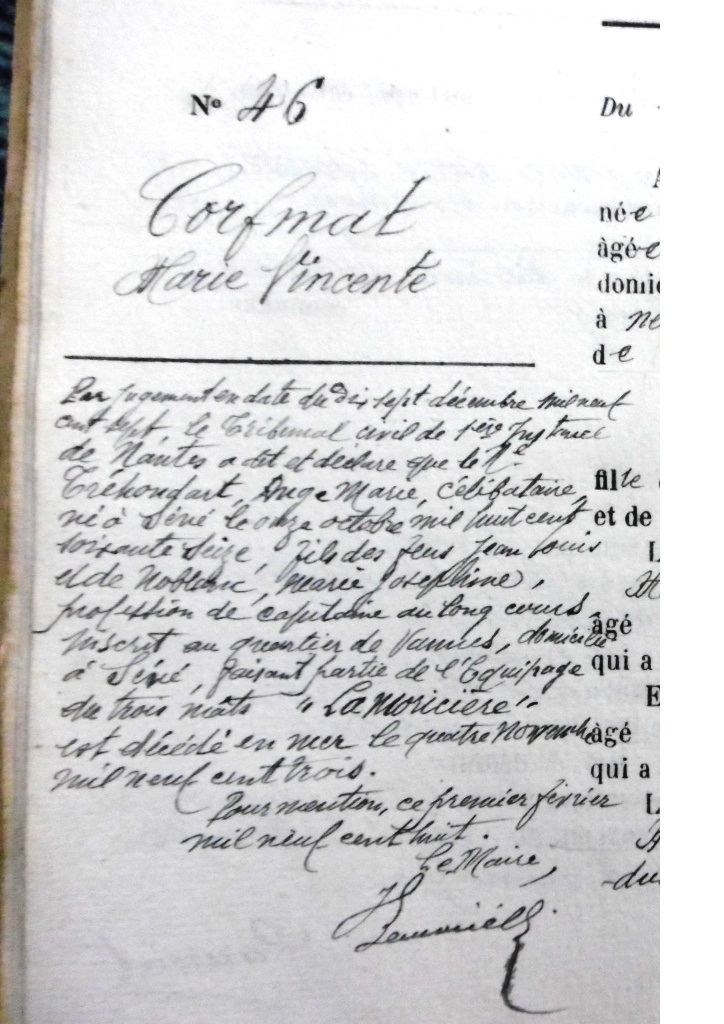 Nº 46
Du
Corfmat
Marie Vincente
née
àgée
domic
à
de
Par jugement en date du dix sept décembre mil neuf
cent sept le Tribunal civil de 1ère Instance
de Nantes a dit et déclare que le
Tréhondart, Ange Marie, célibataire,
né à Séné le onze octobre mil huit cent
soixante seize, fils des feus Jean Louis
et de Noblanc, Marie Josephine,
profession de capitaine au long cours
inscrit au quartier de Vannes, domicilié
à Séné, faisant partie de l'Equipage
du trois mâts "Lamoricière"
est décédé en mer le quatre Novembre
mil neuf cent trois.
Pour mention, ce premier février
mil neuf cent huit.
Le Maire,
fille
et de
L
âgé
qui a
E
àgé
qui a
L
du